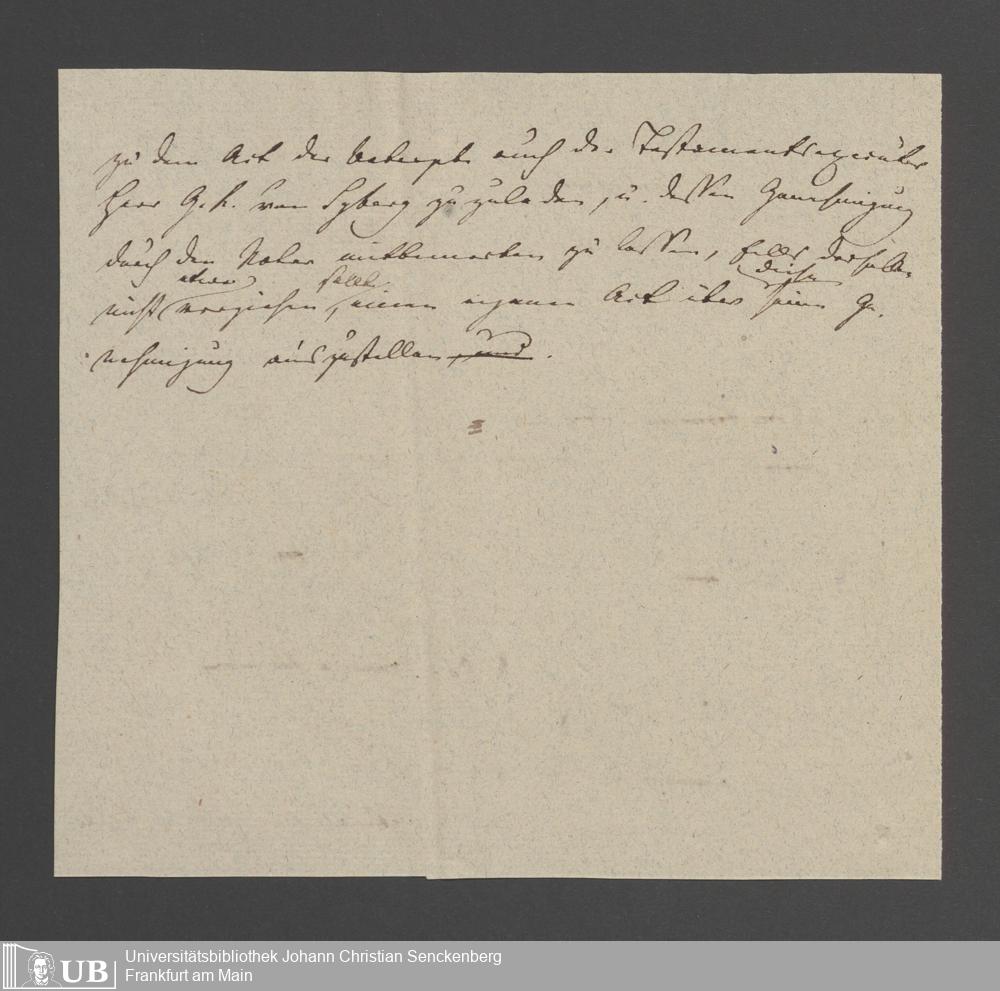 zu dem Act der auch der Testamentsexecutor
Herr G. R. von Syberg zuzuladen, u. dessen Genehmigung
durch den Notar mitbemerken zu lassen, falls derselbe
etwa sollte diese
nicht vorziehen, einen eigenen Act über seine Ge-
nehmigung auszustellen, und.
UB
Universitätsbibliothek Johann Christian Senckenberg
Frankfurt am Main